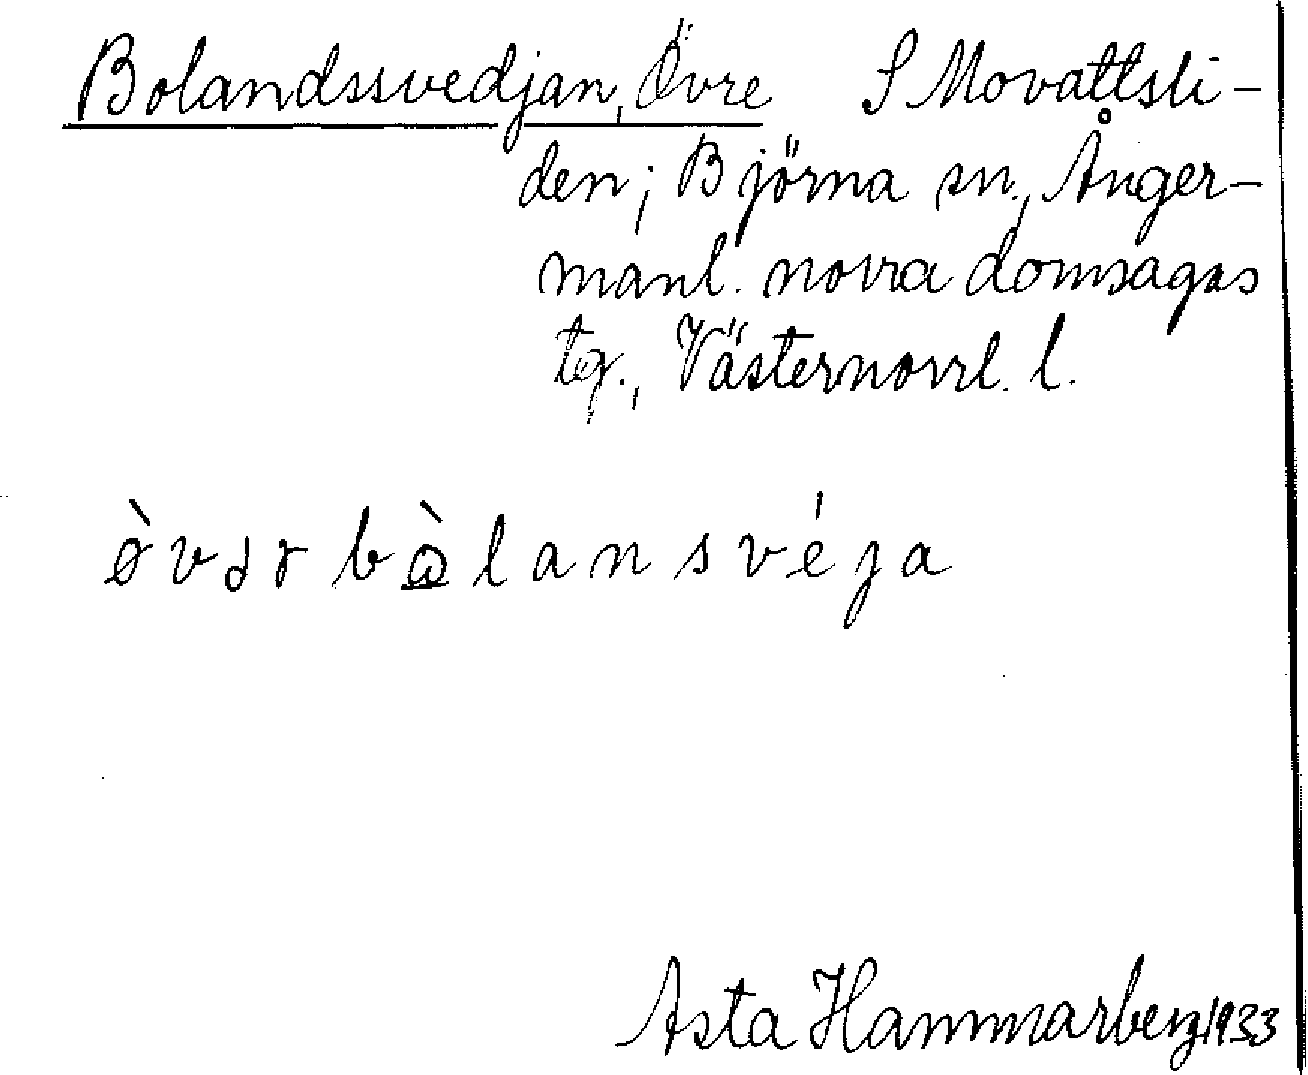 Bolandssvedjan, Övre S Movattsli-
den; Björna sn., Ånger-
manl. norra domsagas
tg., Västernorrl. l.
ø̀vər bὼlansvéja
Asta Hammarberg 1933